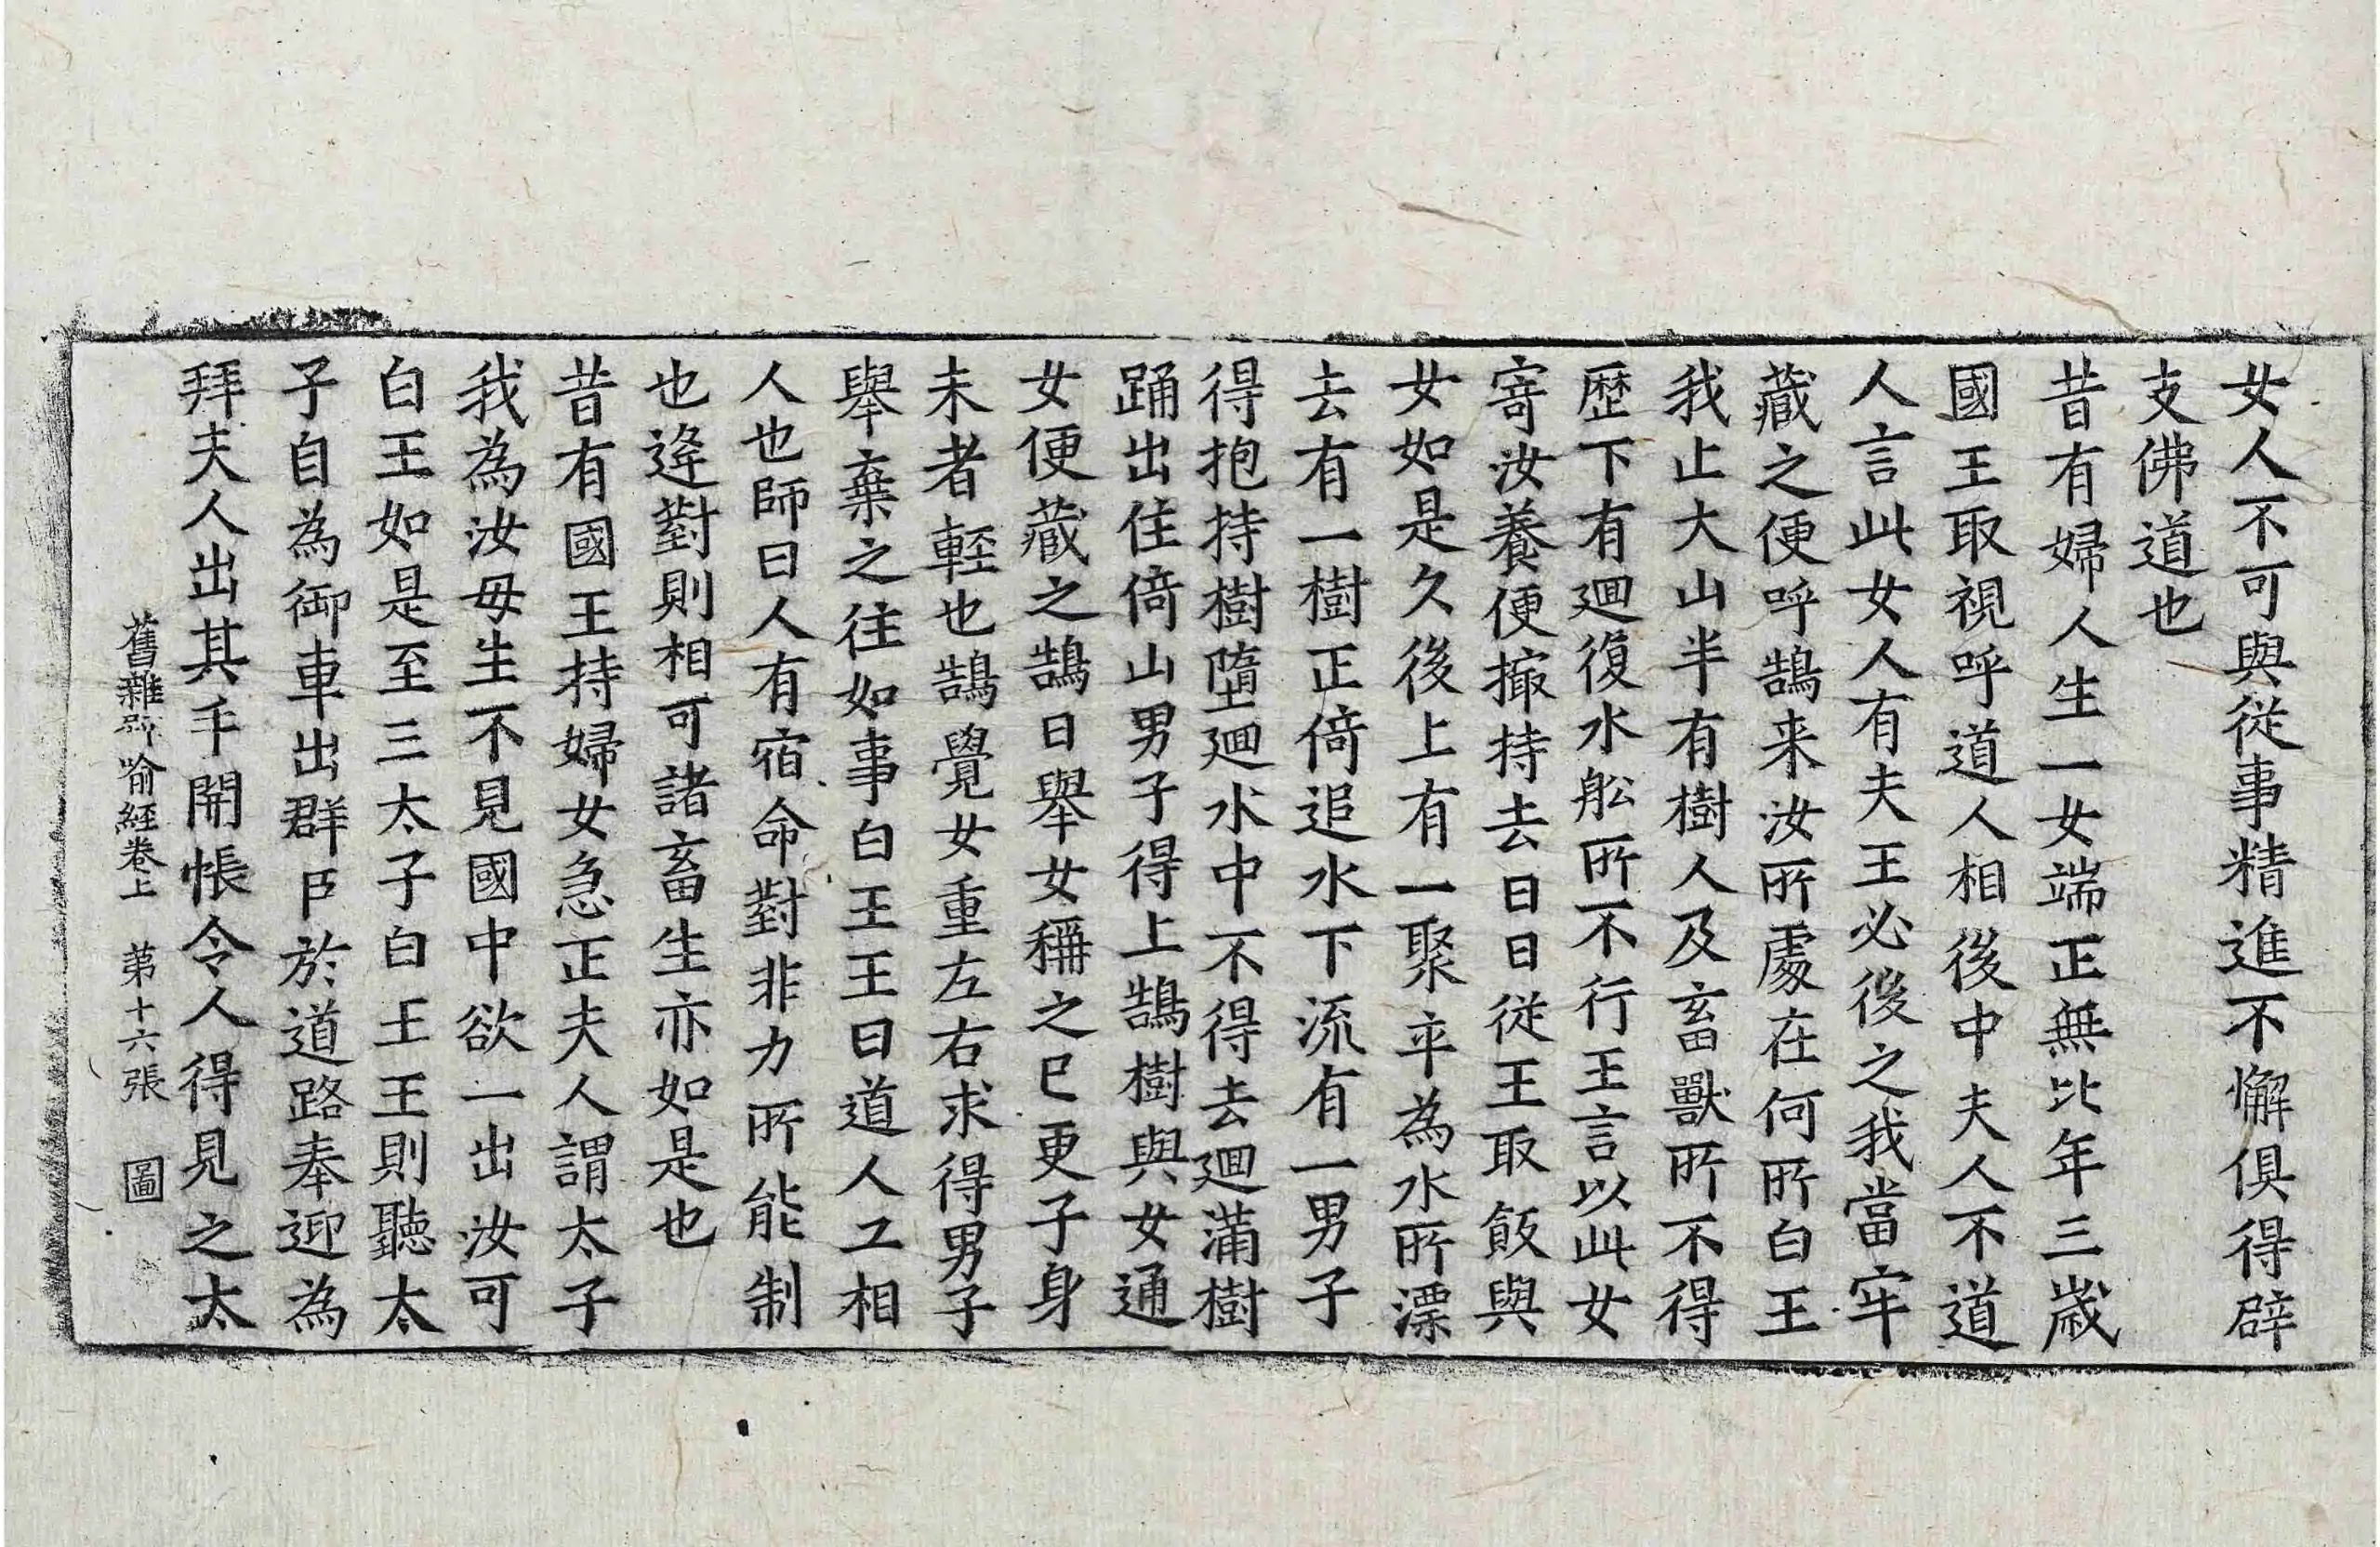 女人不可與從事精進不懈俱得辟
支佛道也
昔有婦人生一女端正無比年三歲
國王取視呼道人相後中夫人不道
人言此女人有夫王必後之我當牢
藏之便呼鵠来汝所處在何所白王
我止大山半有樹人及畜獸所不得
歷下有迴復水舩所不行王言以此女
寄汝養便撮持去日日從王取飯與
女如是久後上有一聚卒為水所漂
去有一樹正倚追水下流有一男子
得抱持樹墮迴水中不得去迴蒲樹
踊出住倚山男子得上鵠樹與女通
女便藏之鵠日舉女稱之已更子身
未者輕也鵠覺女重左右求得男子
舉棄之往如事白王王曰道人工相
人也師曰人有宿命對非力所能制
也逢對則相可諸畜生亦如是也
昔有國王持婦女急正夫人謂太子
我為汝母生不見國中欲一出汝可
白王如是至三太子白王王則聽太
子自為御車出群臣於道路奉迎為
拜夫人出其手開帳令人得見之太
舊雜喻經卷上 第十六張 圖